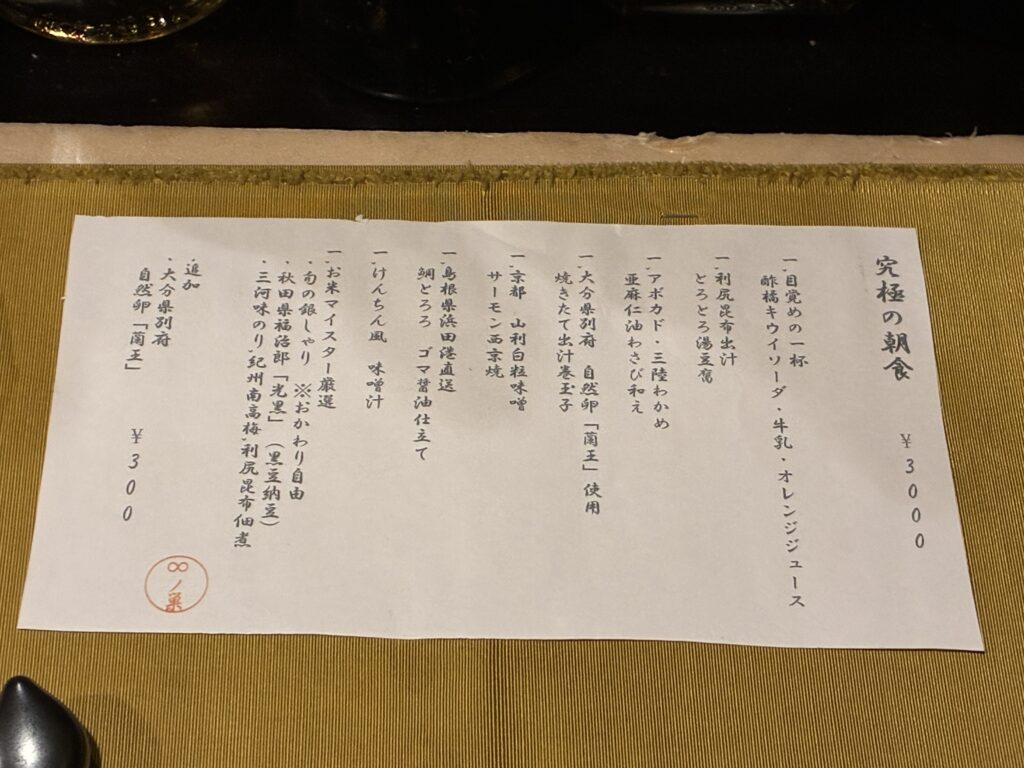 究極の朝食 ¥3000
一、目覚めの一杯
酢橘キウイソーダ・牛乳・オレンジジュース
一、利尻昆布出汁
とろとろ湯豆腐
一、アボカド・三陸わかめ
亜麻仁油わさび和え
一、大分県別府 自然卵「蘭王」使用
焼きたて出汁巻玉子
一、京都 山利白粒味噌
サーモン西京焼
一、島根県浜田港直送
鯛とろろ ゴマ醤油仕立て
一、けんちん風 味噌汁
一、お米マイスター厳選
・旬の銀しゃり ※おかわり自由
・秋田県福治郎「光黒」(黒豆納豆)
・三河味のり、紀州南高梅、利尻昆布佃煮
・追加
・大分県別府
自然卵「蘭王」 ¥300
∞ノ巣